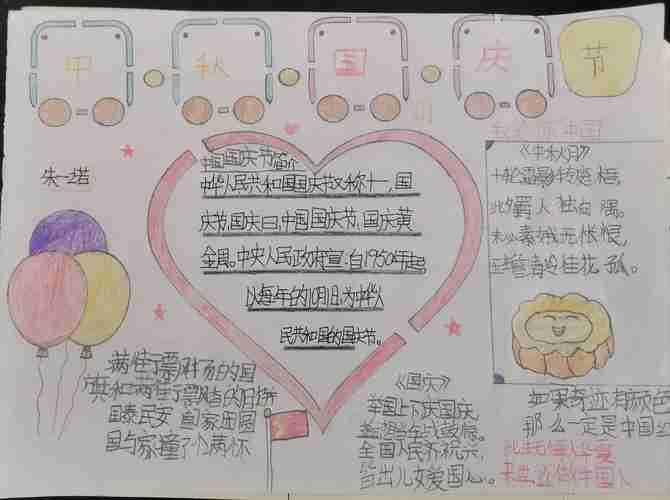 中 秋 国 庆 节
朱一诺
中国国庆节简介
中华人民共和国国庆节又称十一,国
庆节,国庆日,中国国庆节,国庆黄
金周。中央人民政府宣,自1950年起,
以每年的10月1日为中华人
民共和国的国庆节。
中国
《中秋月》
十轮霜影转庭梧,
此夕羁人独向隅。
未必素娥无怅恨,
玉蟾清冷桂花孤。
国泰民安
国与家撞了个满怀
《国庆》
举国上下庆国庆,
全国人民齐祝兴,
皆出儿女爱国心。
如果奇迹有颜色
那么一定是中国红
此生无悔入华夏
来生还做中国人